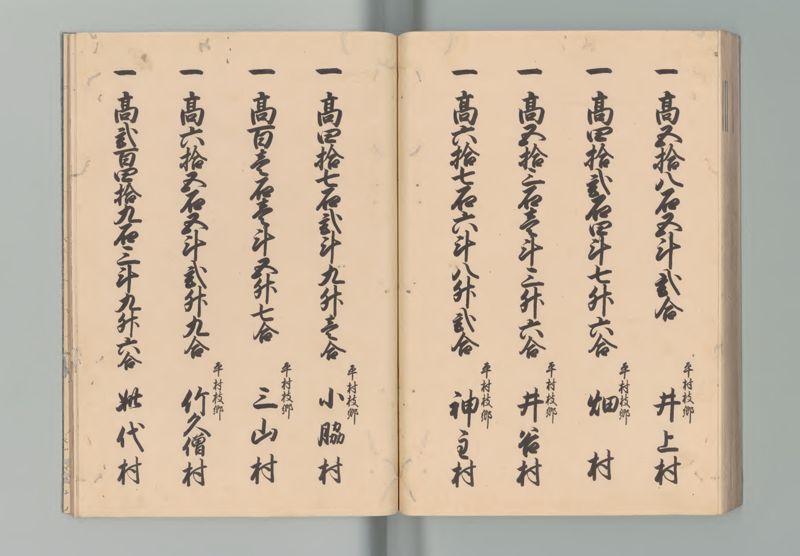 一 高五拾八石五斗弐合 平村枝郷 井上村
一 高四拾弐石四斗七升六合 平村枝郷 畑村
一 高五拾三石壱斗三升六合 平村枝郷 井谷村
一 高六拾七石六斗八升弐合 平村枝郷 神主村
一 高四拾七石弐斗九升壱合 平村枝郷 小脇村
一 高百壱石壱斗五升七合 平村枝郷 三山村
一 高六拾五石五斗弐升九合 平村枝郷 竹久僧村
一 高弐百四拾九石三斗九升六合 代村